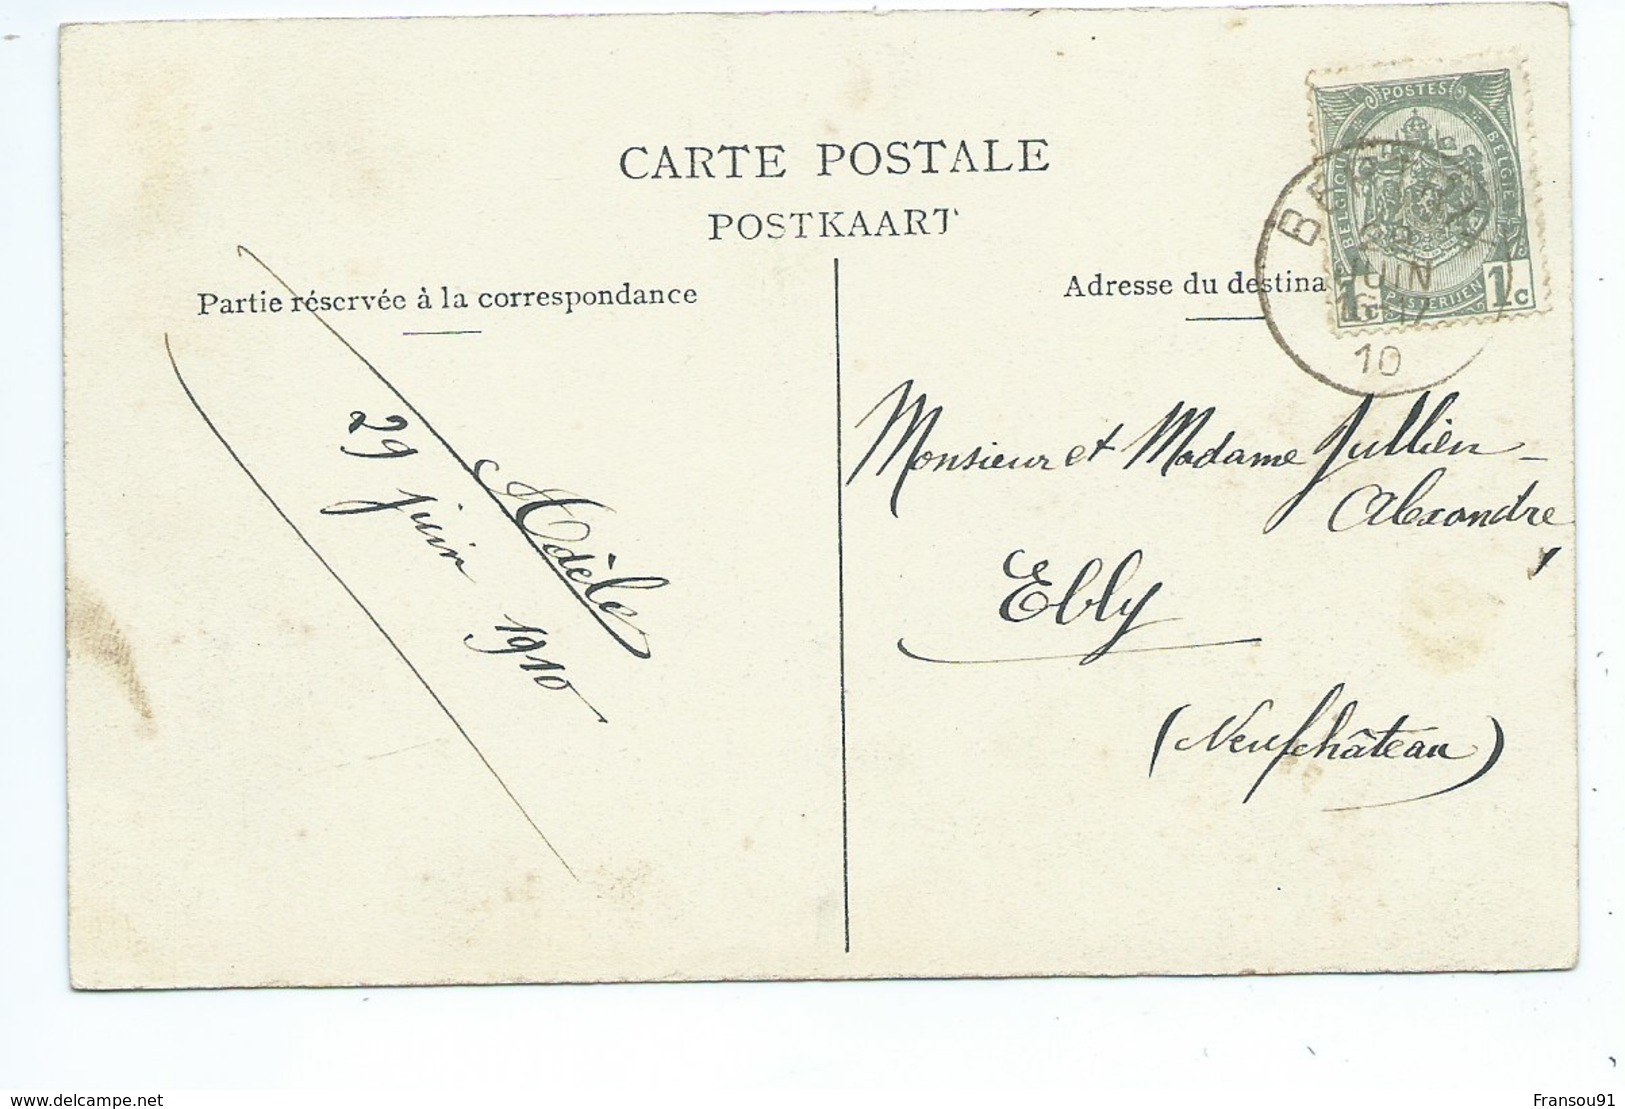 CARTE POSTALE
POSTKAART
Partie réservée à la correspondance
Adresse du destina
POSTES
BELGIQUE
BELGIE
POSTERIJEN
1c
1c
JUIN
10
Monsieur et Madame Jullien-
Alexandre,
Ebly
(Neufchâteau)
Adèle
29 juin 1910
www.delcampe.net
Fransou91